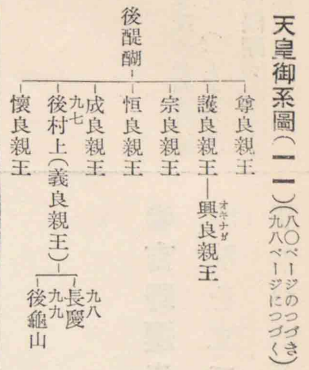 天皇御系圖(二)(八〇ページのつづき)
(九八ページにつづく)
後醍醐
尊良親王
護良親王
興良親王
オキナガ
宗良親王
恒良親王
成良親王
九七
後村上(義良親王)
九八
長慶
九九
後龜山
懷良親王